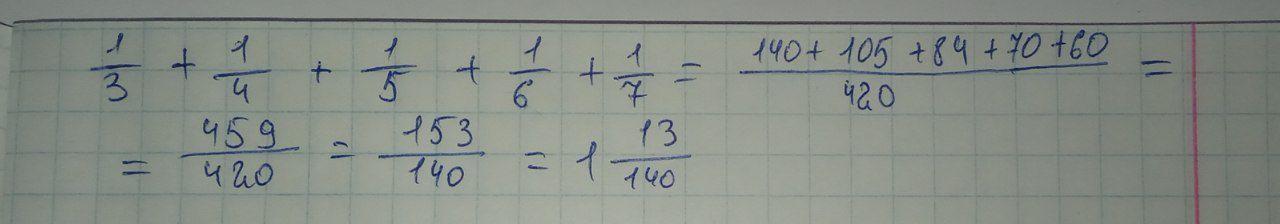 1/3 + 1/4 + 1/5 + 1/6 + 1/7 = (140+105+84+70+60)/420 =
= 459/420 = 153/140 = 1 13/140